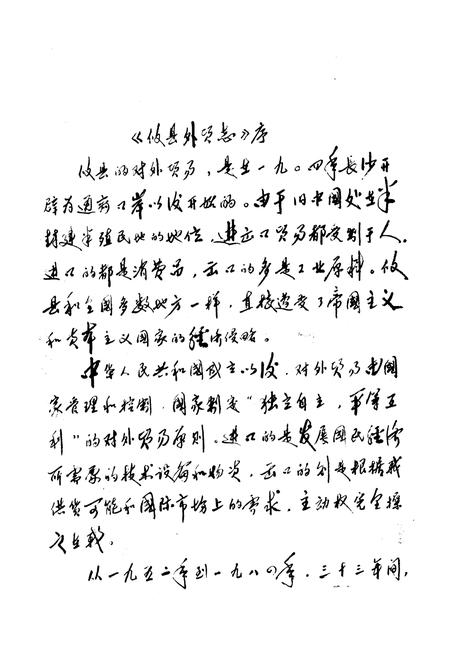 《攸县外贸志》序
攸县的对外贸易，是在一九〇四年长沙开
辟为通商口岸以后开始的。由于旧中国处在半
封建半殖民地的地位，进出口贸易都受制于人。
进口的都是消费品，出口的多是工业原料。攸
县和全国多数地方一样，直接遭受了帝国主义
和资本主义国家的经济侵略。
中华人民共和国成立以后，对外贸易由国
家管理和控制，国家制定“独立自主，平等互
利”的对外贸易原则。进口的是发展国民经济
所需要的技术设备和物资，出口的则是根据我
供货可能和国际市场上的需求，主动权完全操
之在我。
从一九五二年到一九八四年，三十三年间，